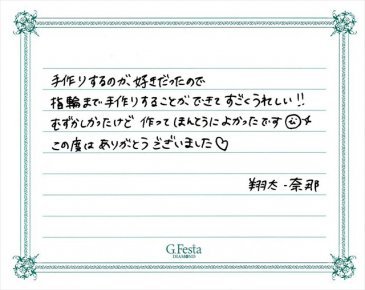 手作りするのが、好きだったので
指輪まで手作りすることができてすごくうれしい!!
むずかしかったけど 作ってほんとうによかったです
この度は ありがとうございました♡
翔太・奈那
G.Festa
DIAMOND